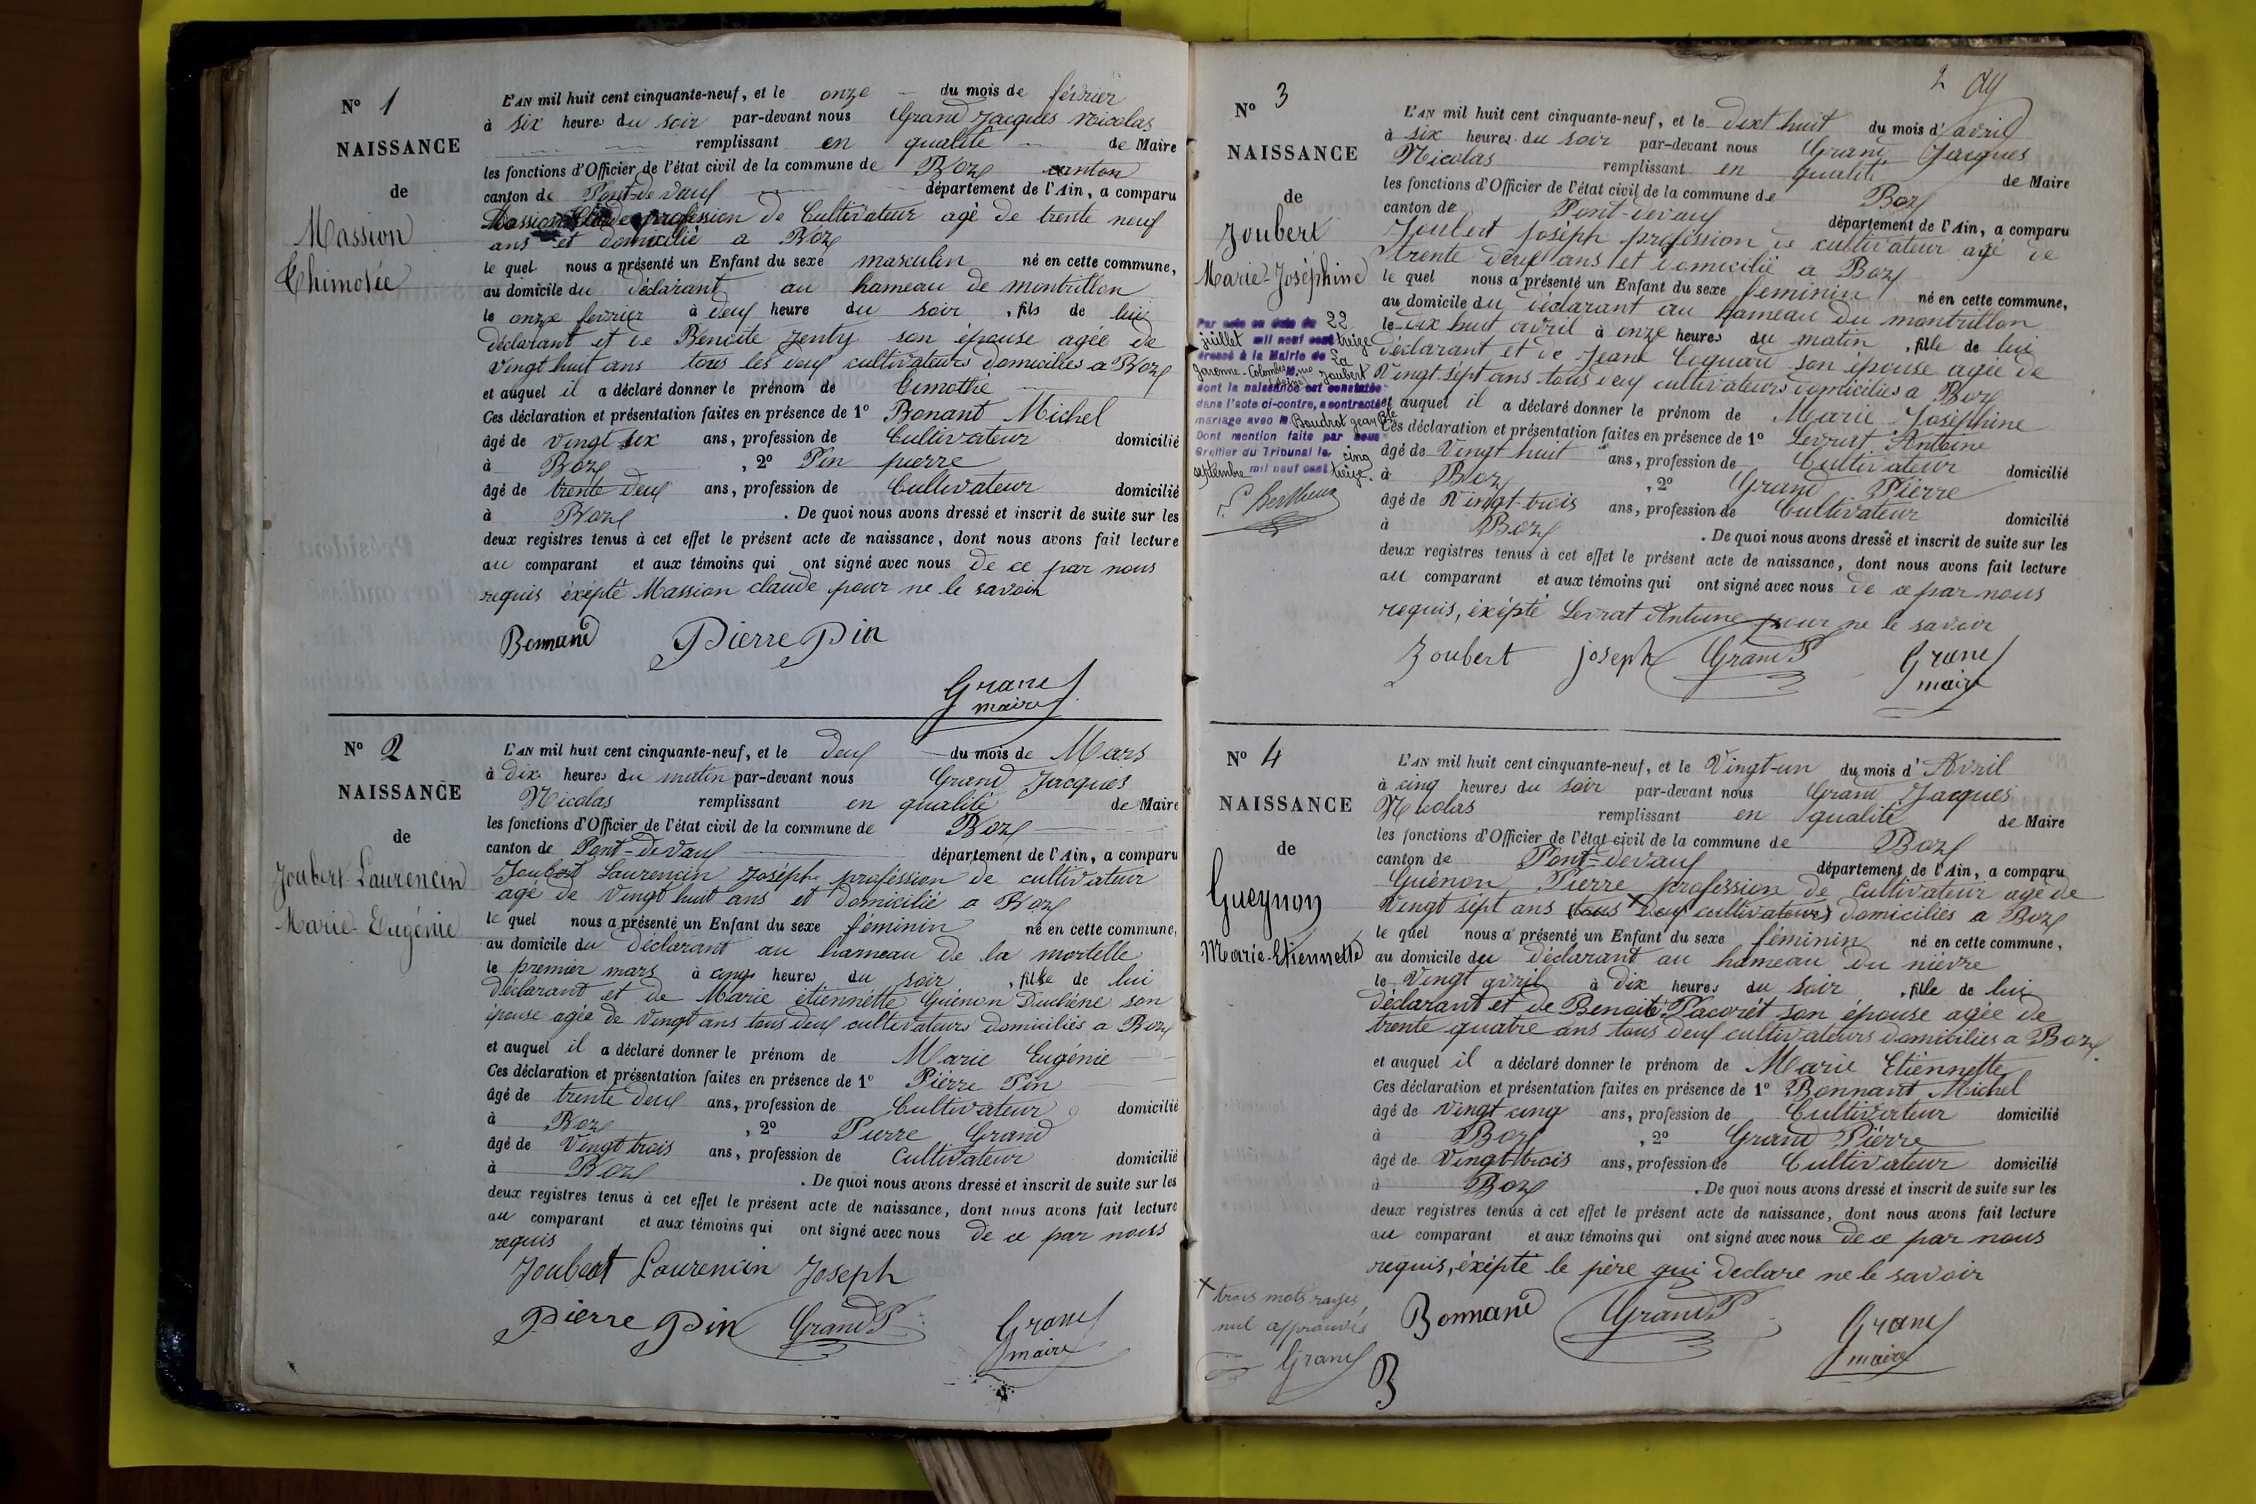 N° 1
NAISSANCE
de
Massion
Thimotée
L'AN mil huit cent cinquante-neuf, et le onze du mois de février
à six heures du soir par-devant nous Grand Jacques Nicolas
remplissant en qualité de Maire
les fonctions d'Officier de l'état civil de la commune de Boz canton
canton de Pont-de Vaux département de l'Ain, a comparu
Massion Claude profession de Cultivateur agé de trente neuf
ans et domicilié a Boz
le quel nous a présenté un Enfant du sexe masculin né en cette commune,
au domicile du déclarant au hameau de montrillon
le onze fevrier à deux heure du soir , fils de lui
déclarant et de Benoite Jenty son épouse agée de
vingt huit ans tous les deux cultivateurs domiciliés a Boz
et auquel il a déclaré donner le prénom de Timothée
Ces déclaration et présentation faites en présence de 1° Bonant Michel
âgé de vingt six ans, profession de Cultivateur domicilié
à Boz , 2° Pin pierre
âgé de trente deux ans, profession de Cultivateur domicilié
à Boz . De quoi nous avons dressé et inscrit de suite sur les
deux registres tenus à cet effet le présent acte de naissance, dont nous avons fait lecture
au comparant et aux témoins qui ont signé avec nous de ce par nous
requis éxépté Massion claude pour ne le savoir
Bonnand Pierre Pin
Grand
maire
N° 2
NAISSANCE
de
Joubert-Laurencin
Marie-Eugénie
L'AN mil huit cent cinquante-neuf, et le deux du mois de Mars
à dix heures du matin par-devant nous Grand Jacques
Nicolas remplissant en qualité de Maire
les fonctions d'Officier de l'état civil de la commune de Boz
canton de Pont-devaux département de l'Ain, a comparu
Joubert Laurencin Joséph profession de cultivateur
agé de vingt huit ans et domicilié a Boz
le quel nous a présenté un Enfant du sexe féminin né en cette commune,
au domicile du déclarant au hameau de la mortelle
le premier mars à cinq heures du soir , fille de lui
déclarant et de Marie etiennétte Guénon Duchéne son
épouse agée de vingt ans tous deux cultivateurs domiciliés a Boz
et auquel il a déclaré donner le prénom de Marie Eugénie
Ces déclaration et présentation faites en présence de 1° Piérre Pin
âgé de trente deux ans, profession de Cultivateur domicilié
à Boz , 2° Pierre Grand
âgé de Vingt trois ans, profession de Cultivateur domicilié
à Boz . De quoi nous avons dressé et inscrit de suite sur les
deux registres tenus à cet effet le présent acte de naissance, dont nous avons fait lecture
au comparant et aux témoins qui ont signé avec nous de ce par nous
requis
Joubert Laurencin Joseph
Pierre Pin Grand P
Grand
maire
2
N° 3
NAISSANCE
de
Joubert
Marie-Joséphine
Par acte en date du 22
juillet mil neuf cent treize
dressé à la Mairie de La
Garenne-Colombes
Joubert
dont la naissance est constatée
dans l'acte ci-contre, a contracté
mariage avec M Boudrot Jean Bte
Dont mention faite par nous
Greffier du Tribunal le cinq
septembre mil neuf cent treize.
L'AN mil huit cent cinquante-neuf, et le dixt huit du mois d'avril
à six heures du soir par-devant nous Grand Jacques
Nicolas remplissant en qualité de Maire
les fonctions d'Officier de l'état civil de la commune de Boz
canton de Pont-devaux département de l'Ain, a comparu
Joubert Joséph profession de cultivateur agé de
trente deux ans et domicilié a Boz
le quel nous a présenté un Enfant du sexe féminin né en cette commune,
au domicile du déclarant au hameau du montrillon
le dix huit avril à onze heures du matin , fille de lui
déclarant et de Jeane Coquard son épouse agée de
Vingt-sept ans tous deux cultivateurs domiciliés a Boz
et auquel il a déclaré donner le prénom de Marie Joséphine
Ces déclaration et présentation faites en présence de 1° Levrat Antoine
âgé de Vingt huit ans, profession de Cultivateur domicilié
à Boz , 2° Grand Piérre
âgé de Vingt-trois ans, profession de Cultivateur domicilié
à Boz . De quoi nous avons dressé et inscrit de suite sur les
deux registres tenus à cet effet le présent acte de naissance, dont nous avons fait lecture
au comparant et aux témoins qui ont signé avec nous de ce par nous
requis, éxépté Levrat Antoine pour ne le savoir
Joubert joseph Grand P
Grand
maire
N° 4
NAISSANCE
de
Guegnon
Marie-Etiennette
L'AN mil huit cent cinquante-neuf, et le Vingt-un du mois d'Avril
à cinq heures du soir par-devant nous Grand Jacques
Nicolas remplissant en qualité de Maire
les fonctions d'Officier de l'état civil de la commune de Boz
canton de Pont-devaux département de l'Ain, a comparu
Guénon Pierre profession de Cultivateur agé de
vingt sept ans (tous deux cultivateurs) domiciliés a Boz
le quel nous a présenté un Enfant du sexe féminin né en cette commune,
au domicile du déclarant au hameau du niévre
le Vingt avril à dix heures du soir , fille de lui
déclarant et de Benoite Pacorét son épouse agée de
trente quatre ans tous deux cultivateurs domiciliés a Boz.
et auquel il a déclaré donner le prénom de Marie Etiennette
Ces déclaration et présentation faites en présence de 1° Bonnant Michel
âgé de vingt cinq ans, profession de Cultivateur domicilié
à Boz , 2° Grand Piérre
âgé de Vingt-trois ans, profession de Cultivateur domicilié
à Boz . De quoi nous avons dressé et inscrit de suite sur les
deux registres tenus à cet effet le présent acte de naissance, dont nous avons fait lecture
au comparant et aux témoins qui ont signé avec nous de ce par nous
requis, éxépté le père qui declare ne le savoir
x trois mots rayés
nul approuvés
Grand
B
Bonnand Grand P
Grand
maire